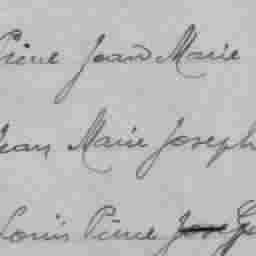 Pierre Jean Marie
Jean Marie Joseph
Louis Pierre